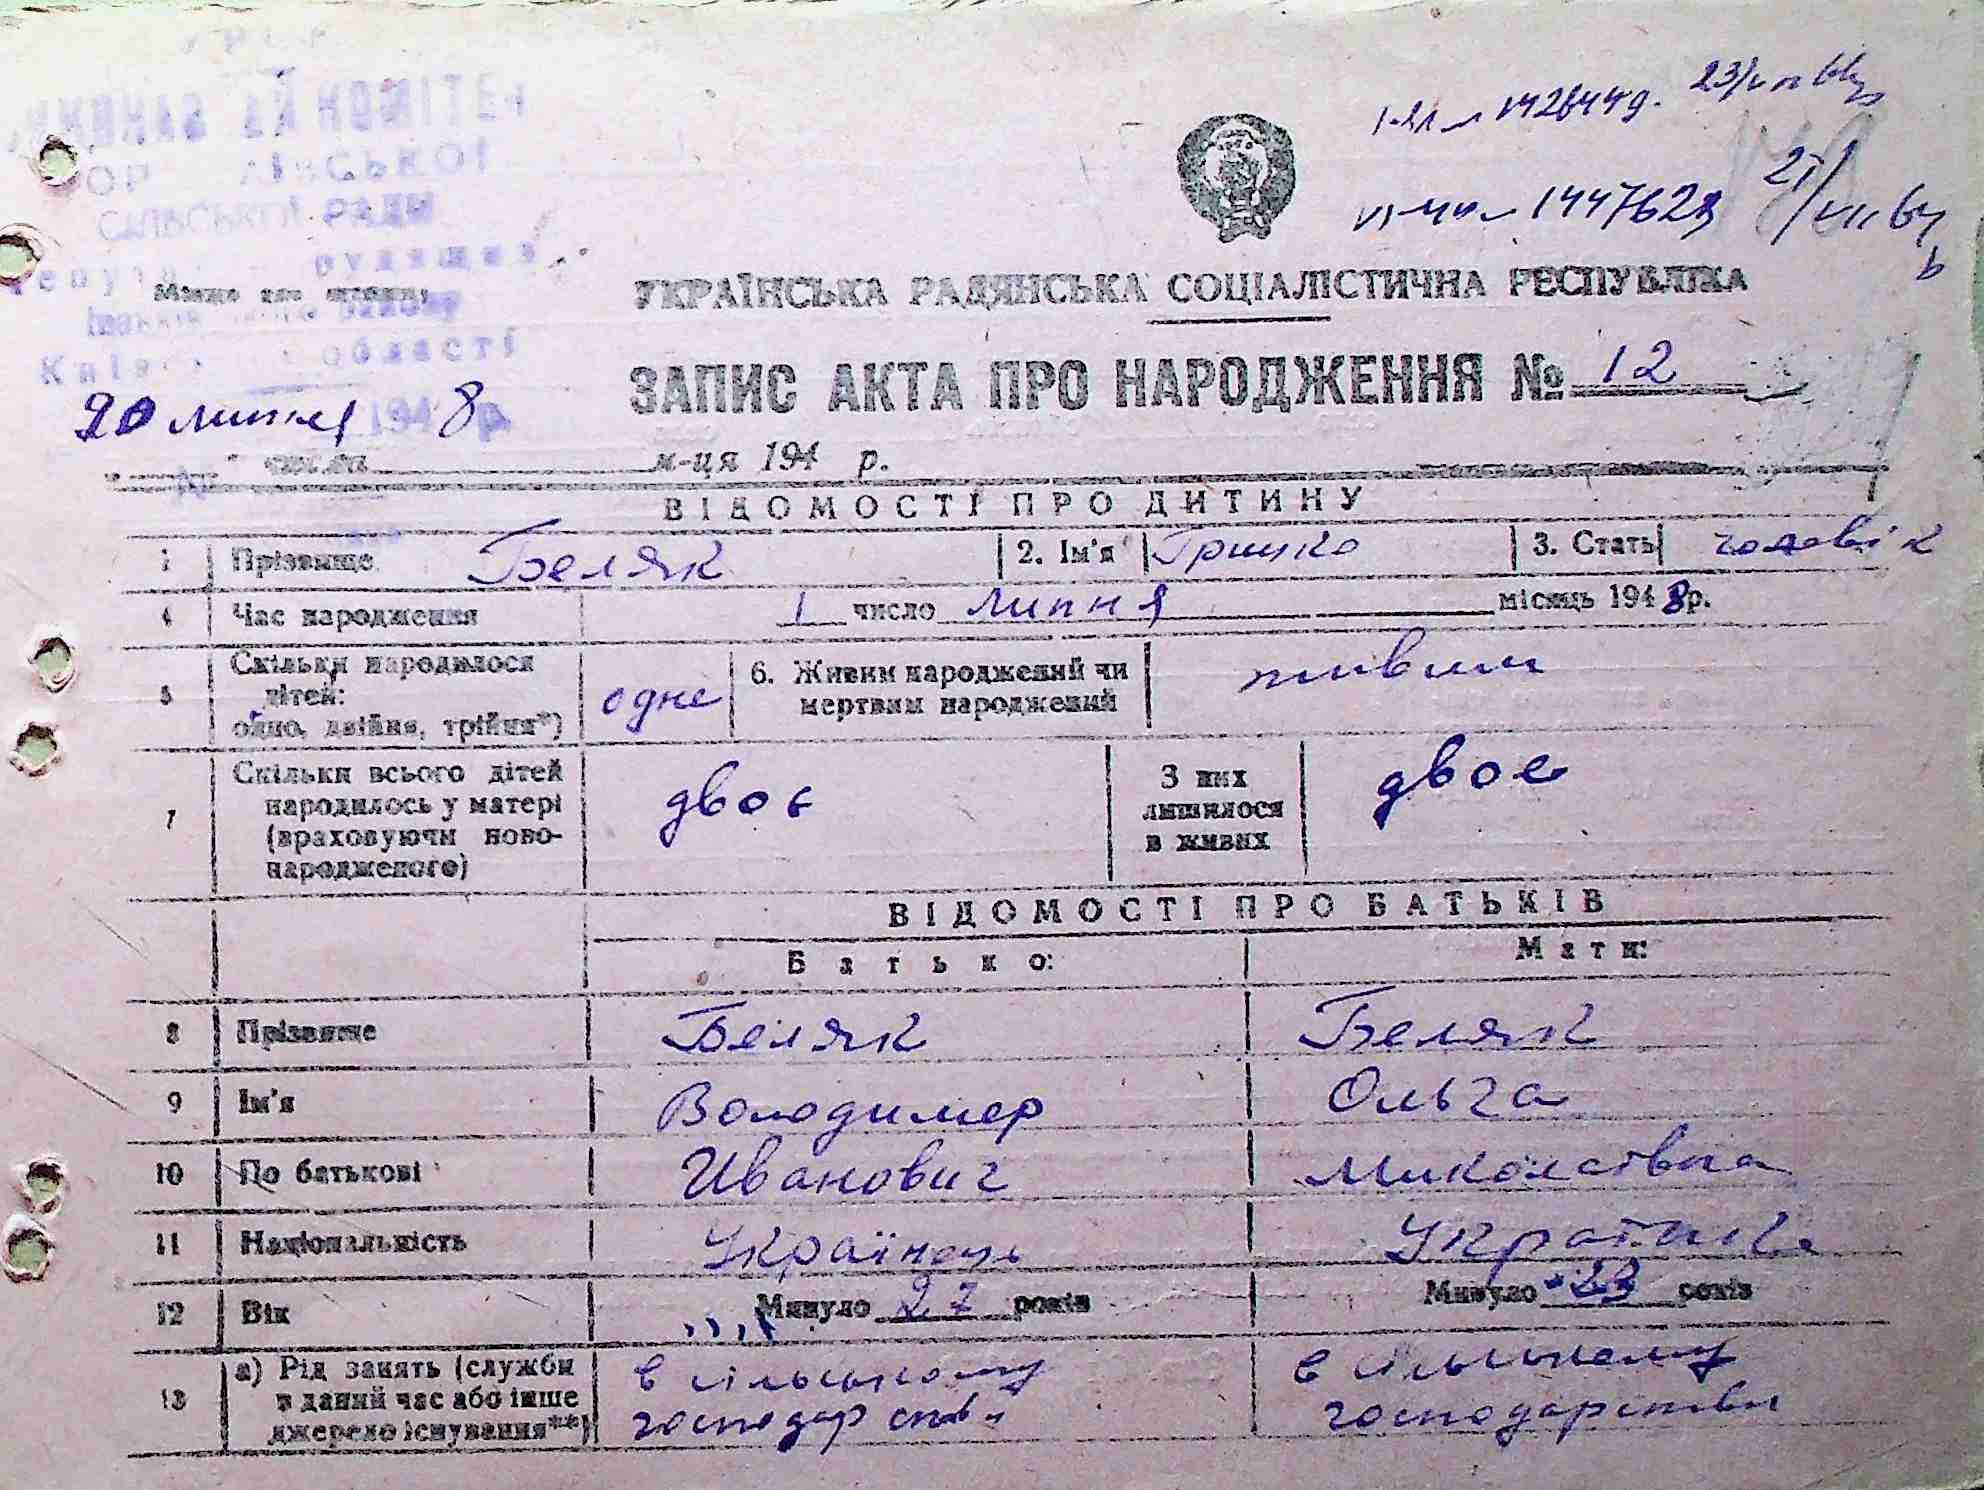 КОМІТЕТ
СІЛЬСЬКОЇ РАДИ
району
області
20 липня 1948 р.
1447628
УКРАЇНСЬКА РАДЯНСЬКА СОЦІАЛІСТИЧНА РЕСПУБЛІКА
ЗАПИС АКТА ПРО НАРОДЖЕННЯ № 12
числа м-ця 194 р.
ВІДОМОСТІ ПРО ДИТИНУ
1 Прізвище Беляк 2. Ім'я Гришко 3. Стать чоловік
4 Час народження 1 число липня місяць 1948 р.
5 Скільки народилося дітей: одно, двійня, трійня*) одне 6. Живим народжений чи мертвим народжений живим
7 Скільки всього дітей народилось у матері (враховуючи новонародженого) двоє З них лишилося в живих двое
ВІДОМОСТІ ПРО БАТЬКІВ
Батько: Мати:
8 Прізвище Беляк Беляк
9 Ім'я Володимер Ольга
10 По батькові Иванович Миколаївна
11 Національність Українець Українка
12 Вік Минуло 27 років Минуло 23 років
13 а) Рід занять (служби в даний час або інше джерело існування**) в сільському господарстві в сільському господарстви